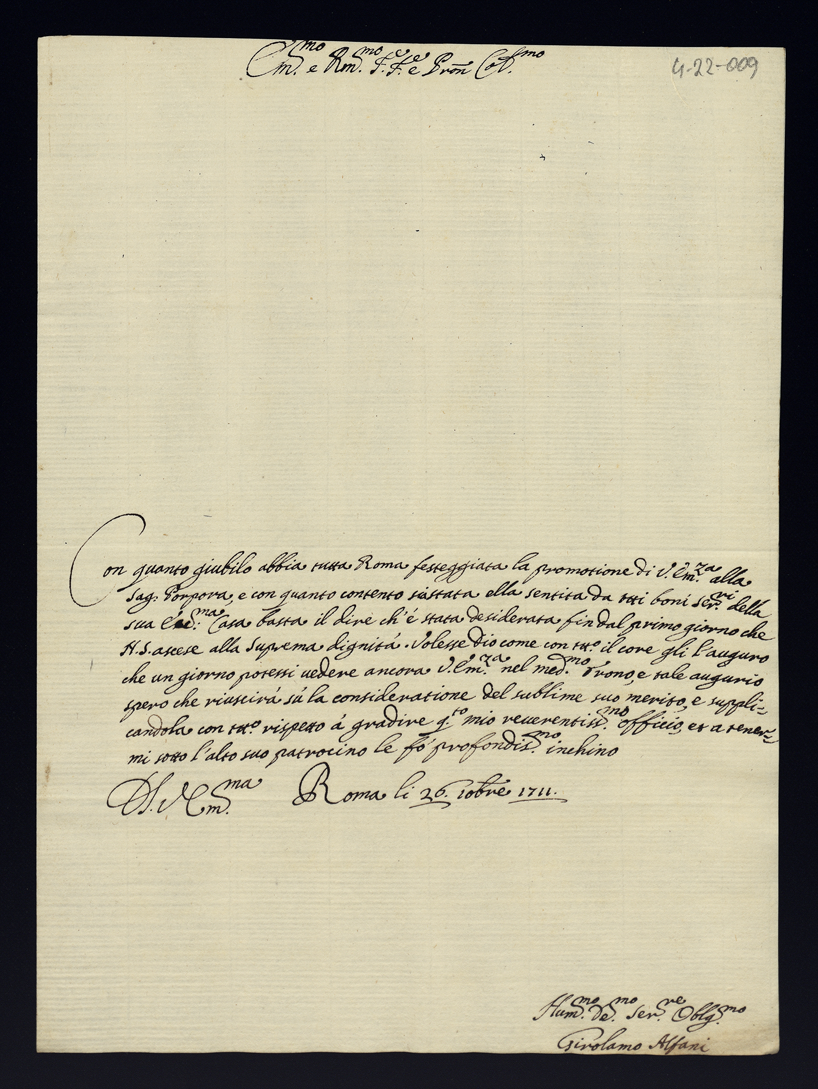 4-22-009
Em.mo e Rm.mo S.r S.r e Pron Col.mo
Con quanto giubilo abbia tutta Roma festeggiata la promotione di V. Em.za alla
Sag. Porpora, e con quanto contento sia stata ella sentita da tti boni Ser.ri della
sua Casa basta il dire ch'é stata desiderata fin dal primo giorno che
N.S. ascese alla Suprema dignitá. Volesse Dio come con tt.o il core gli l'auguro
che un giorno potessi vedere ancora V. Em.za nel med.mo Trono, e tale augurio
spero che riuscirá sú la consideratione del sublime suo merito, e suppli=
candola con tt.o rispetto á gradire q.to mio reverentiss.mo officio, et a tener=
mi sotto l'alto suo patrocino le fó profondis.mo inchino
D. V. Em.ma Roma li 26. 1711.
Hum.mo De.mo Ser.re Oblg.mo
Girolamo Alfani